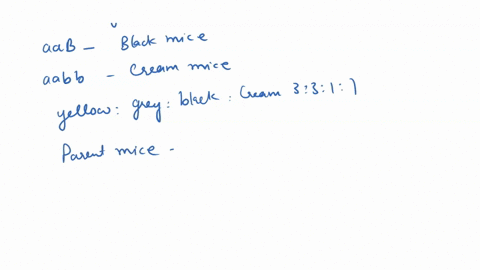 aaB - Black mice
aabb - Cream mice
yellow: grey: black: Cream 3:3:1:1
Parent mice -